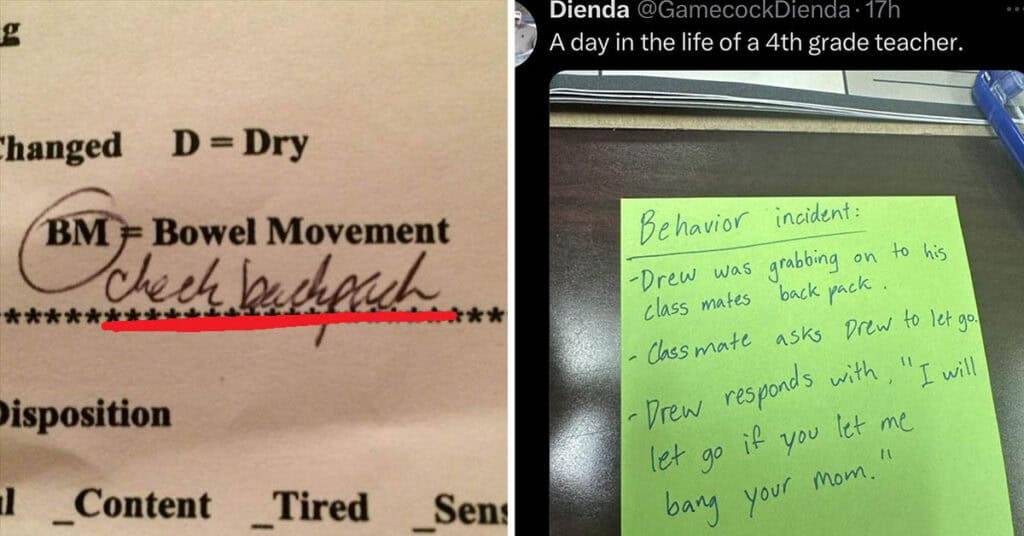 g
Changed D = Dry
BM = Bowel Movement
check backpack
***************************
Disposition
l _Content _Tired _Sens
Dienda @GamecockDienda · 17h
A day in the life of a 4th grade teacher.
Behavior incident:
-Drew was grabbing on to his
class mates back pack.
- Classmate asks Drew to let go.
- Drew responds with, "I will
let go if you let me
bang your mom."